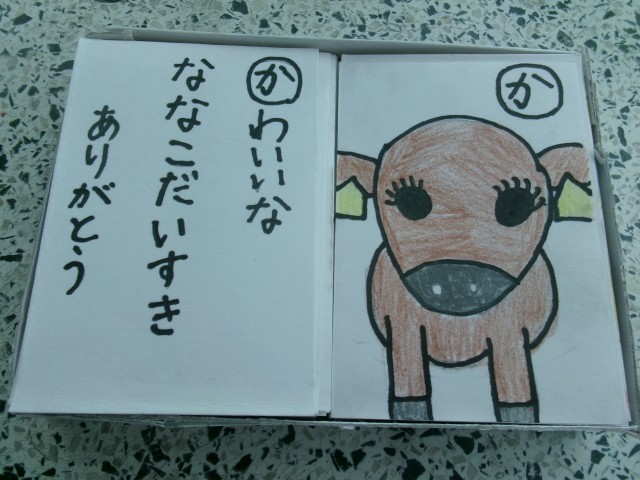 かわいいな
ななこだいすき
ありがとう
か